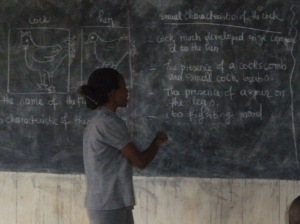 cock
hen
the name of the
characteristic of the
sexual characteristics of the cock
cock much developed
d to the hen
- The presence of a cockscomb
and small
- The presence of a spur on
the legs.
- fighting